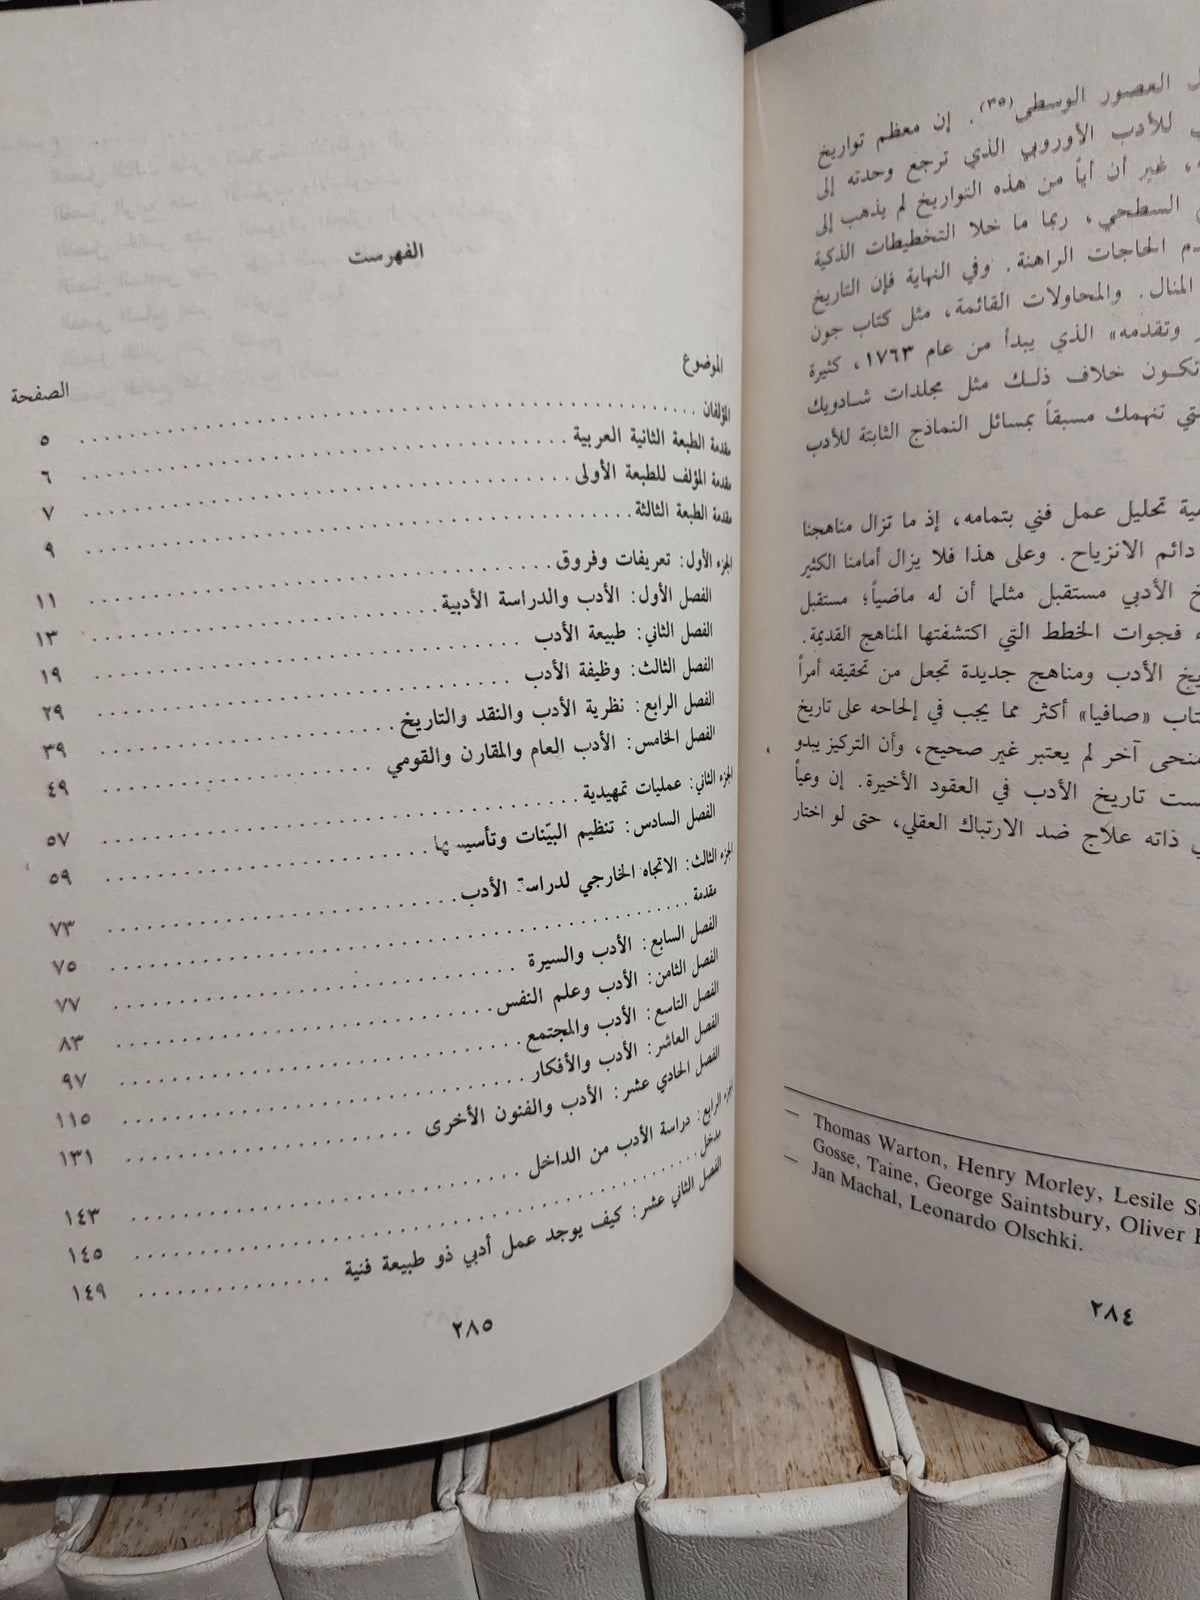 ـل العصور الوسطى(٣٥). إن معظم تواريخ
للأدب الأوروبي الذي ترجع وحدته إلى
، غير أن أياً من هذه التواريخ لم يذهب إلى
السطحي، ربما ما خلا التخطيطات الذكية
ـدم الحاجات الراهنة. وفي النهاية فإن التاريخ
المنال. والمحاولات القائمة، مثل كتاب جون
وتقدمه» الذي يبدأ من عام ١٧٦٣، كثيرة
تكون خلاف ذلك مثل مجلدات شادويك
ـتي تنهمك مسبقاً بمسائل النماذج الثابتة للأدب
ـمية تحليل عمل فني بتمامه، إذ ما تزال مناهجنا
دائم الانزياح. وعلى هذا فلا يزال أمامنا الكثير
ـخ الأدبي مستقبل مثلما أن له ماضياً؛ مستقبل
ـء فجوات الخطط التي اكتشفتها المناهج القديمة.
ـيخ الأدب ومناهج جديدة تجعل من تحقيقه أمراً
ـتاب «صافيا» أكثر مما يجب في إلحاحه على تاريخ
منحى آخر لم يعتبر غير صحيح، وأن التركيز يبدو
ـست تاريخ الأدب في العقود الأخيرة. إن وعياً
ـي ذاته علاج ضد الارتباك العقلي، حتى لو اختار
— Thomas Warton, Henry Morley, Lesile St
Gosse, Taine, George Saintsbury, Oliver E
— Jan Machal, Leonardo Olschki.
٢٨٤
الفهرست
الموضوع الصفحة
المؤلفان ٥
مقدمة الطبعة الثانية العربية ٦
مقدمة المؤلف للطبعة الأولى ٧
مقدمة الطبعة الثالثة ٩
الجزء الأول: تعريفات وفروق ١١
الفصل الأول: الأدب والدراسة الأدبية ١٣
الفصل الثاني: طبيعة الأدب ١٩
الفصل الثالث: وظيفة الأدب ٢٩
الفصل الرابع: نظرية الأدب والنقد والتاريخ ٣٩
الفصل الخامس: الأدب العام والمقارن والقومي ٤٩
الجزء الثاني: عمليات تمهيدية ٥٧
الفصل السادس: تنظيم البيّنات وتأسيسها ٥٩
الجزء الثالث: الاتجاه الخارجي لدراسة الأدب ٧٣
مقدمة ٧٥
الفصل السابع: الأدب والسيرة ٧٧
الفصل الثامن: الأدب وعلم النفس ٨٣
الفصل التاسع: الأدب والمجتمع ٩٧
الفصل العاشر: الأدب والأفكار ١١٥
الفصل الحادي عشر: الأدب والفنون الأخرى ١٣١
الجزء الرابع: دراسة الأدب من الداخل ١٤٣
مدخل ١٤٥
الفصل الثاني عشر: كيف يوجد عمل أدبي ذو طبيعة فنية ١٤٩
٢٨٥